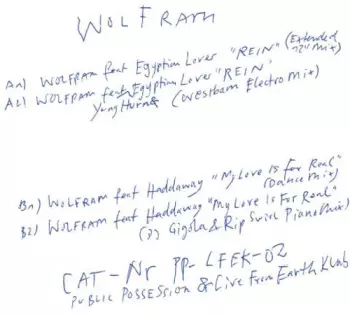 WOLFRAM
A1) WOLFRAM feat Egyptian Lover "REIN" (Extended
12" Mix)
A2) WOLFRAM feat Egyptian Lover "REIN"
Yung Hurn & (Westbam Electro Mix)
B1) WOLFRAM feat Haddaway "My Love is For Real"
(Dance Mix)
B2) WOLFRAM feat Haddaway "My Love Is For Real"
Gigola & Rip Swirl Piano Mix)
CAT-Nr PP-LFEK-02
PUBLIC POSSESSION & Live From Earth Klub